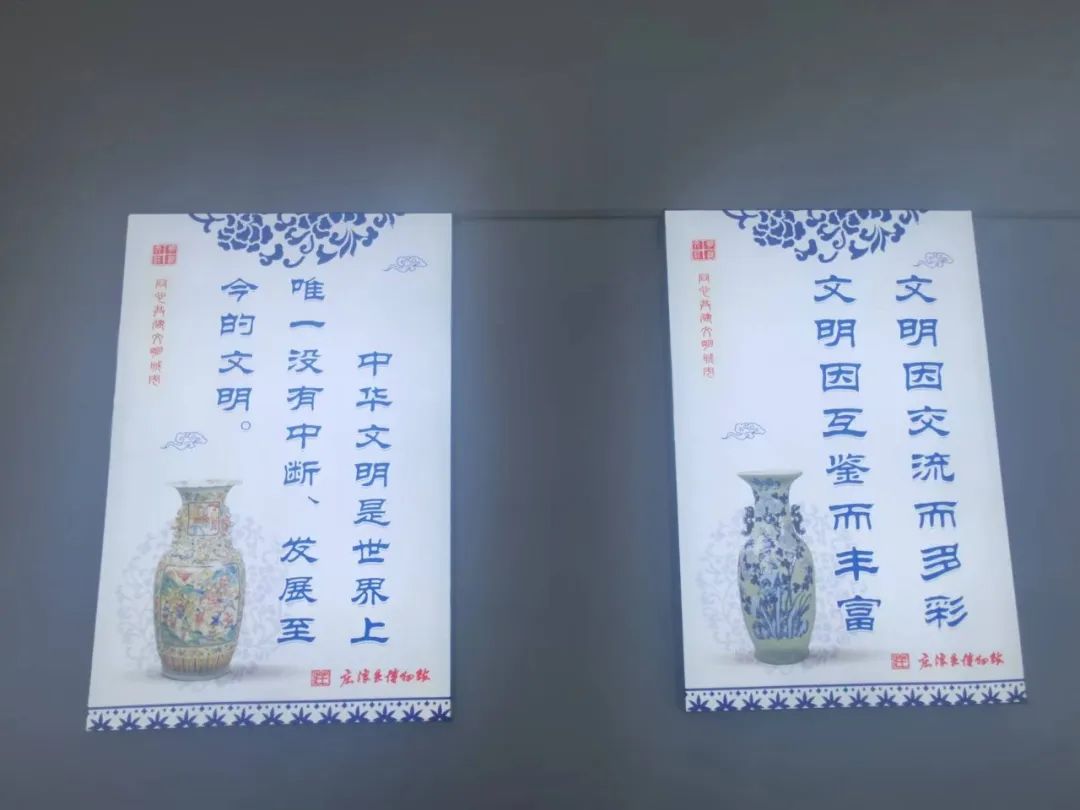 中华文明是世界上
唯一没有中断、发展至
今的文明。
庄浪县博物馆
文明因交流而多彩
文明因互鉴而丰富
庄浪县博物馆